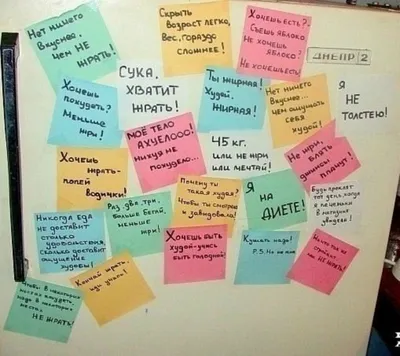 Нет ничего
вкуснее,
чем НЕ
ЖРАТЬ!
Скрыть
возраст легко,
Вес, гораздо
сложнее!
Хочешь есть?
Съешь яблоко.
Не хочешь
яблоко?
Не хочешь есть!
ДНЕПР 2
Хочешь
похудеть?
Меньше
жри!
СУКА,
ХВАТИТ
ЖРАТЬ!
Ты жирная!
Худей,
ЖИРНАЯ!
Нет ничего
вкуснее...
чем ощущать
себя
худой!
Я
НЕ
ТОЛСТЕЮ!
МОЁ ТЕЛО
АХУЕЛООО!
нихуя не
похудело...
45 кг.
или не жри
или мечтай!
Не жри,
блять
джинсы
плачут!
Хочешь
жрать-
попей
водички!
Раз, два, три,
больше бегай,
меньше
жри!
Почему ты
такая худая?
Чтобы ты смотрела
и завидовала!
Я
на
ДИЕТЕ!
Будь проклят
тот день, когда
я
Никогда еда
не доставит
столько
удовольствия,
сколько доставит
ощущение
худобы!
Кончай жрать,
иди учись!
Хочешь быть
худой-учись
быть голодной!
Кушать надо!
P.S. Но не мне
НЕ ЖРАТЬ!
Чтобы в некоторых
местах похудеть,
надо в некоторых
местах
НЕ ЖРАТЬ!